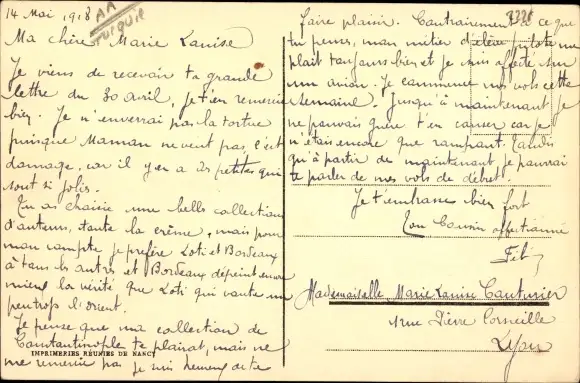 14 Mai 1918
AA
TURQUIE
Ma chère Marie Louise
Je viens de recevoir ta grande
lettre du 30 avril, je t'en remercie
bien. Je n'enverrai pas la tortue
puisque Maman ne veut pas, c'est
damage, car il y en a de petites qui
sont si jolies.
Tu as choisie une belle collection
d'auteurs, toute la crème, mais pour
mon compte je préfère Loti et Bordeaux
à tous les autres et Bordeaux dépeint encore
mieux la vérité que Loti qui vante un
peu trop l'orient.
Je pense que ma collection de
Constantinople te plairait, mais ne
me remercie pas je suis heureux de te
IMPRIMERIES RÉUNIES DE NANCY
faire plaisir. Contrairement à ce que
tu penses, mon métier d'élève pilote me
plait toujours bien et je suis affecté sur
un avion. Je commence mes vols cette
semaine. Jusqu'à maintenant je
ne pouvais guère t'en causer car je
n'étais encore que rampant. Tandis
qu'à partir de maintenant je pourrai
te parler de mes vols de début.
Je t'embrasse bien fort
Ton Cousin affectionné
Mademoiselle Marie Louise Couturier
rue Pierre Corneille
Lyon